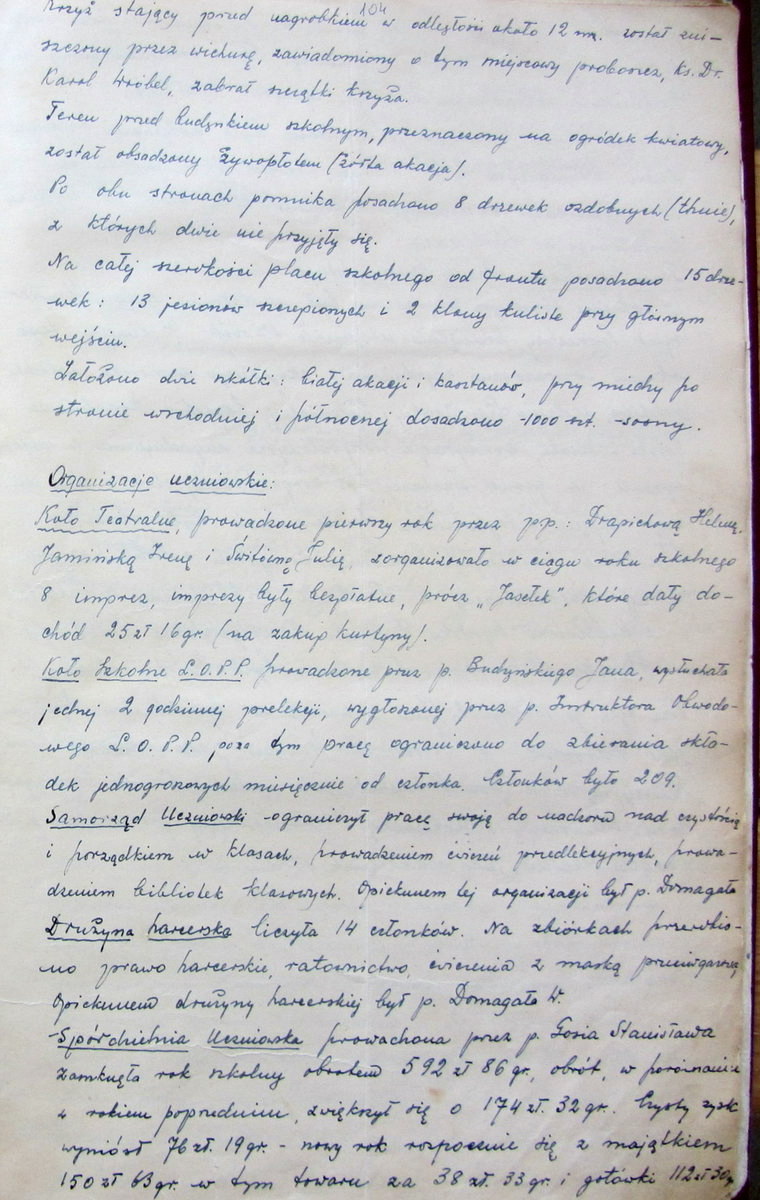 104
krzyż stający przed nagrobkiem w odległości około 12 m. został zni-
szczony przez wichurę, zawiadomiony o tym miejscowy proboszcz, ks. Dr.
Karol Wróbel, zabrał szczątki krzyża.
Teren przed budynkiem szkolnym, przeznaczony na ogródek kwiatowy,
został obsadzony żywopłotem (żółta akacja).
Po obu stronach pomnika posadzono 8 drzewek ozdobnych (thuie),
z których dwie nie przyjęły się.
Na całej szerokości placu szkolnego od frontu posadzono 15 drze-
wek: 13 jesionów szczepionych i 2 klony kuliste przy głównym
wejściu.
Założono dwie szkółki: białej akacji i kasztanów, przy miedzy po
stronie wschodniej i północnej dosadzono -1000 szt. -sosny.
Organizacje uczniowskie:
Koło Teatralne, prowadzone pierwszy rok przez pp.: Drapichową Helenę,
Jamińską Irenę i Julię, zorganizowało w ciągu roku szkolnego
8 imprez, imprezy były bezpłatne, prócz „Jasełek”, które dały do-
chód 25 zł 16 gr. (na zakup kurtyny).
Koło Szkolne L.O.P.P. prowadzone przez p. Budzyńskiego Jana, wysłuchało
jednej 2 godzinnej prelekcji, wygłoszonej przez p. Instruktora Obwodo-
wego L.O.P.P, poza tym pracę ograniczono do zbierania skła-
dek jednogroszowych miesięcznie od członka. Członków było 209.
Samorząd Uczniowski -ograniczył pracę swoją do nadzoru nad czystością
i porządkiem w klasach, prowadzeniem ćwiczeń przedlekcyjnych, prowa-
dzeniem bibliotek klasowych. Opiekunem tej organizacji był p. Domagała
Drużyna harcerska liczyła 14 członków. Na zbiórkach przerobio-
no prawo harcerskie, ratownictwo, ćwiczenia z maską przeciwgazową
Opiekunem drużyny harcerskiej był p. Domagała W.
-Spółdzielnia Uczniowska prowadzona przez p. Gosia Stanisława
zamknęła rok szkolny obrotem 592 zł 86 gr., obrót, w porównaniu
z rokiem poprzednim, zwiększył się o 174 zł. 32 gr. Czysty zysk
wyniósł 76 zł. 19 gr. - nowy rok rozpocznie się z majątkiem
150 zł 63 gr. w tym towaru za 38 zł. 33 gr. i gotówki 112 zł 30 gr